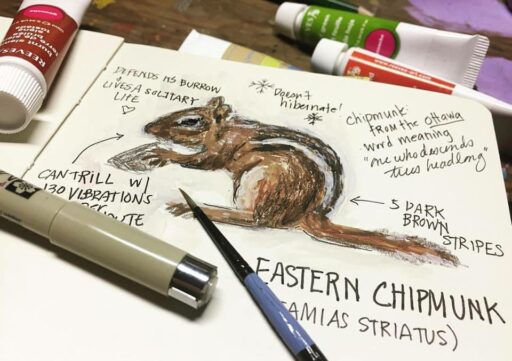 DEFENDS ITS BURROW
LIVES A SOLITARY
LIFE
Doesn't
hibernate!
chipmunk:
from the Ottawa
word meaning
"one who descends
trees headlong"
CAN TRILL W/
130 VIBRATIONS
UTE
5 DARK
BROWN
STRIPES
EASTERN CHIPMUNK
AMIAS STRIATUS)
REEVES
burnt sienna